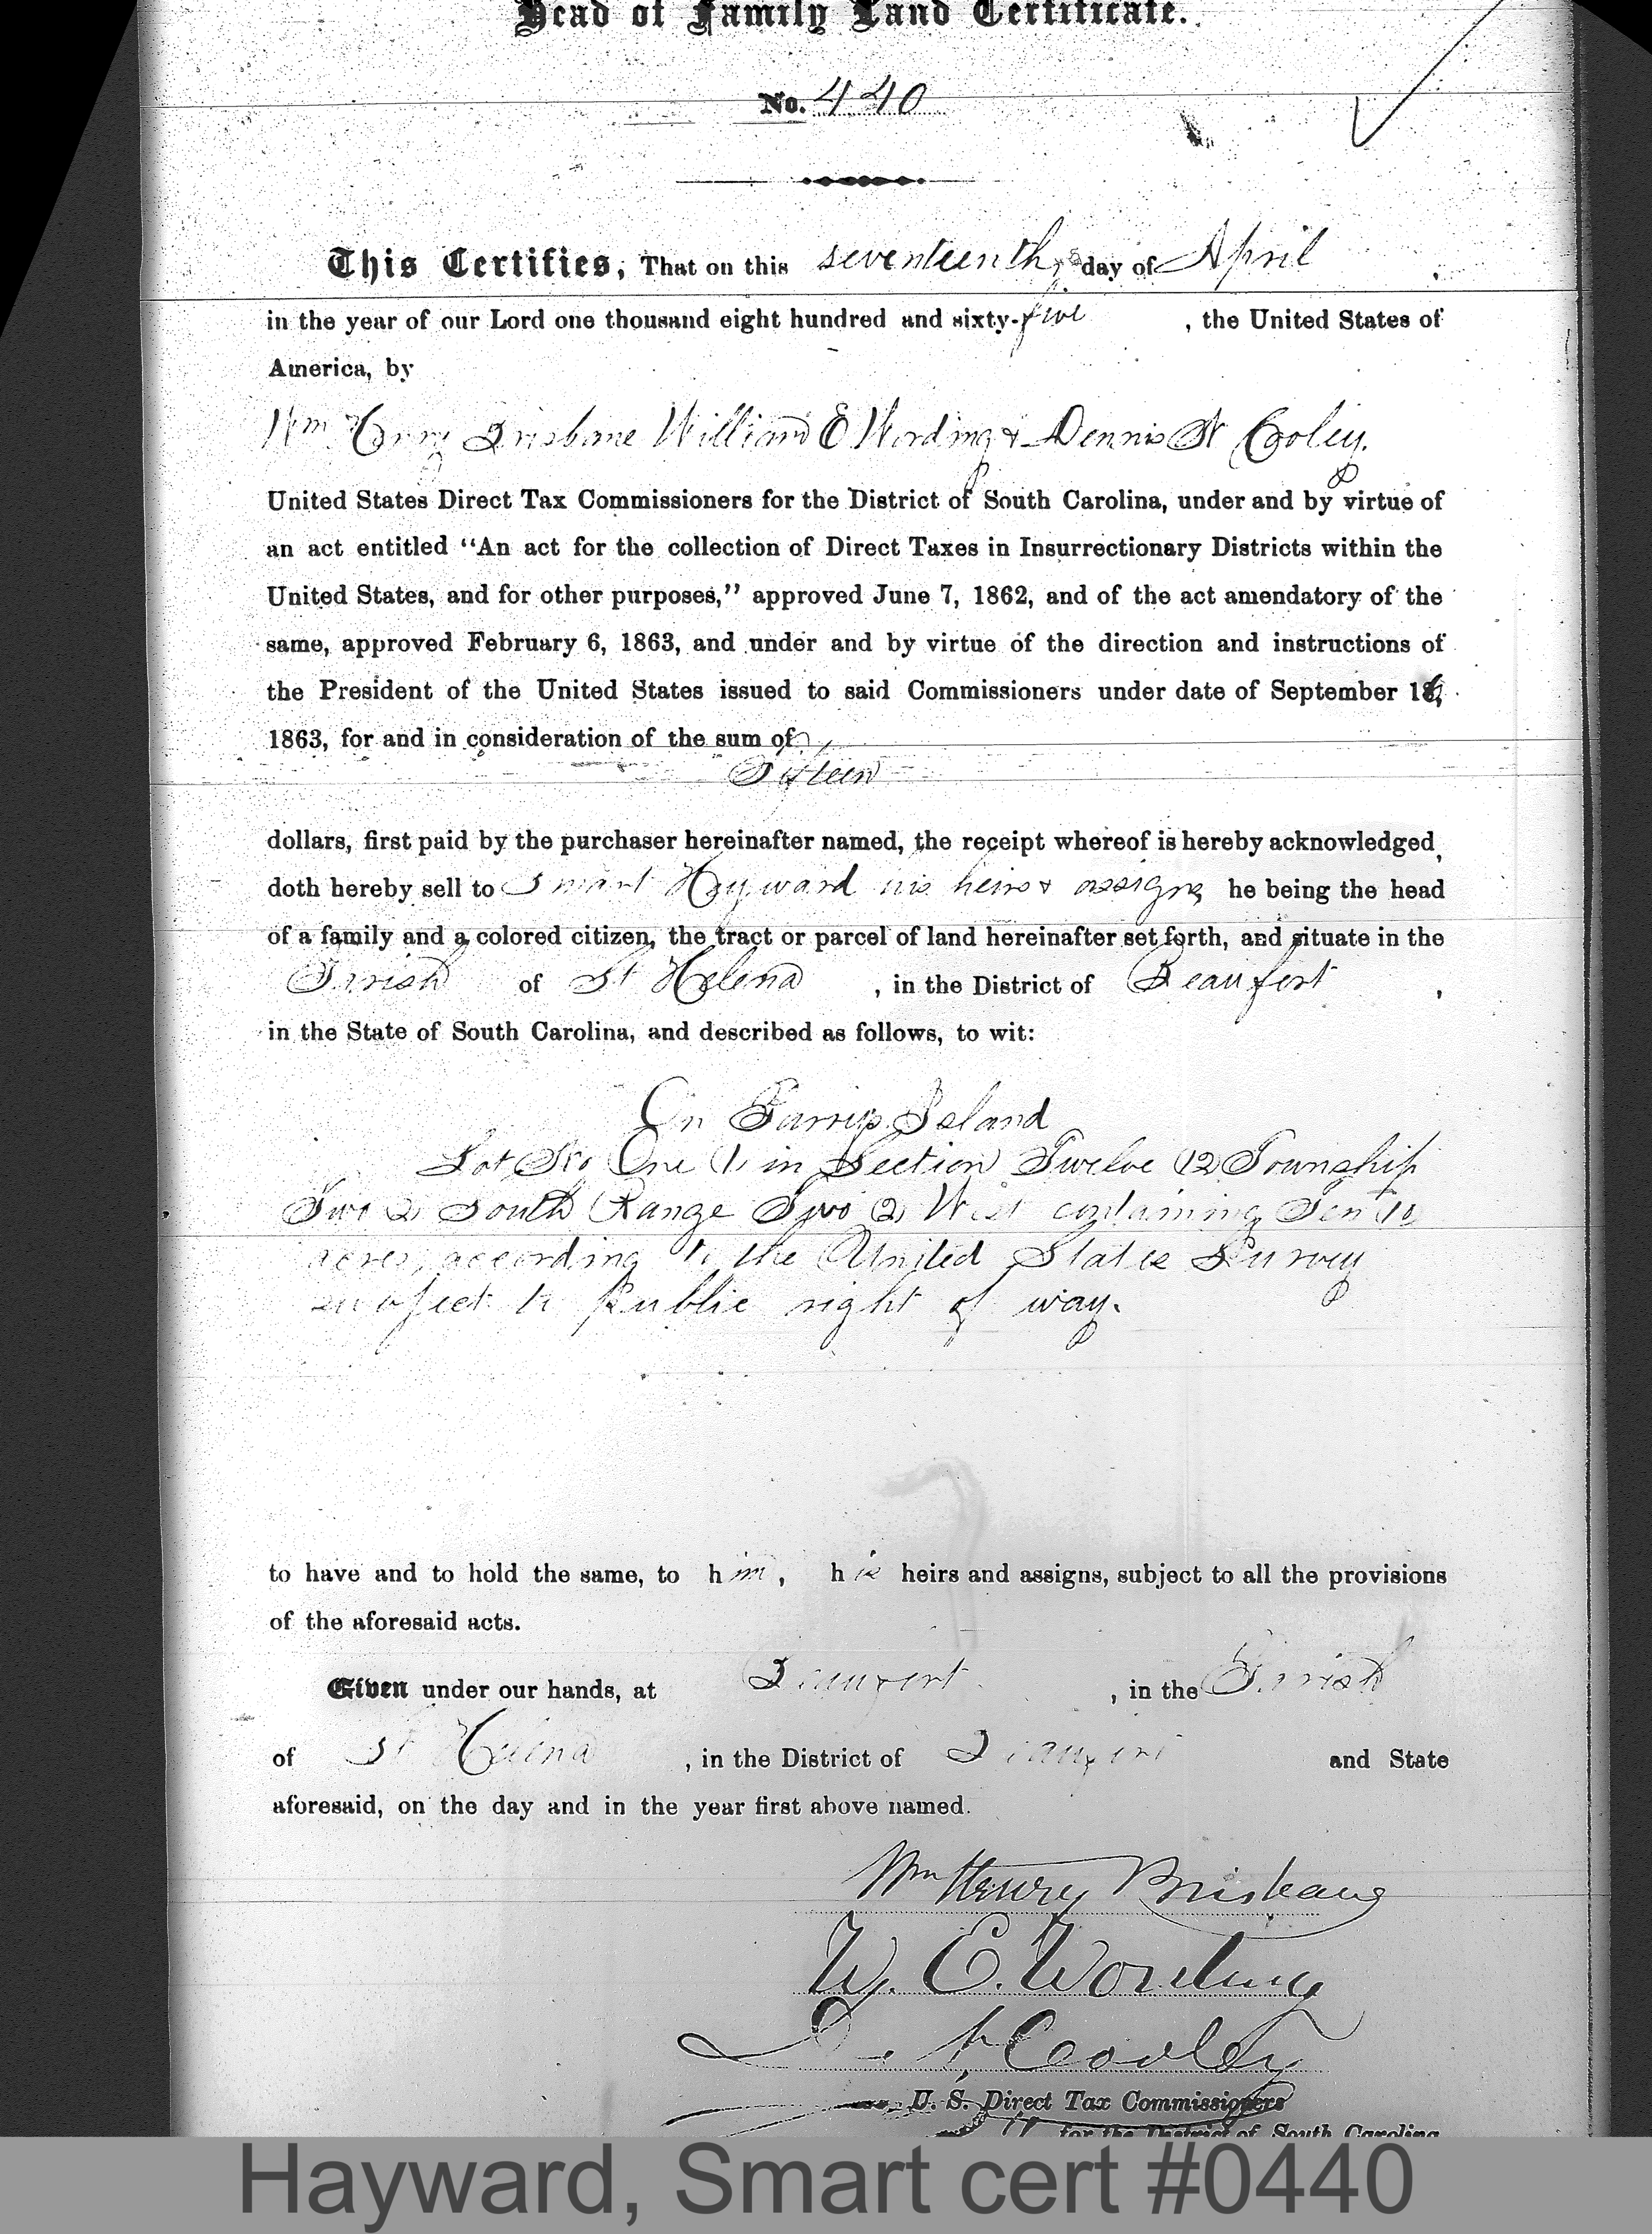 Head of Family Land Certificate.
No. 440
This Certifies, That on this seventeenth day of April,
in the year of our Lord one thousand eight hundred and sixty-five, the United States of
America, by
Wm Henry Brisbane William E Wording & Dennis N Cooley.
United States Direct Tax Commissioners for the District of South Carolina, under and by virtue of
an act entitled "An act for the collection of Direct Taxes in Insurrectionary Districts within the
United States, and for other purposes," approved June 7, 1862, and of the act amendatory of the
same, approved February 6, 1863, and under and by virtue of the direction and instructions of
the President of the United States issued to said Commissioners under date of September
1863, for and in consideration of the sum of
Fifteen
dollars, first paid by the purchaser hereinafter named, the receipt whereof is hereby acknowledged,
doth hereby sell to Smart Hayward his heirs & assigns he being the head
of a family and a colored citizen, the tract or parcel of land hereinafter set forth, and situate in the
Parish of St Helena, in the District of Beaufort,
in the State of South Carolina, and described as follows, to wit:
On Parris Island
Lot No One (1) in Section Twelve (12) Township
Two (2) South Range Two (2) West containing Ten (10)
acres, according to the United States Survey
subject to Public right of way.
to have and to hold the same, to him, his heirs and assigns, subject to all the provisions
of the aforesaid acts.
Given under our hands, at Beaufort, in the Parish
of St Helena, in the District of Beaufort and State
aforesaid, on the day and in the year first above named.
Wm Henry Brisbane
W. E. Wording
D. N. Cooley
U. S. Direct Tax Commissioners
for the District of South Carolina
Hayward, Smart cert #0440